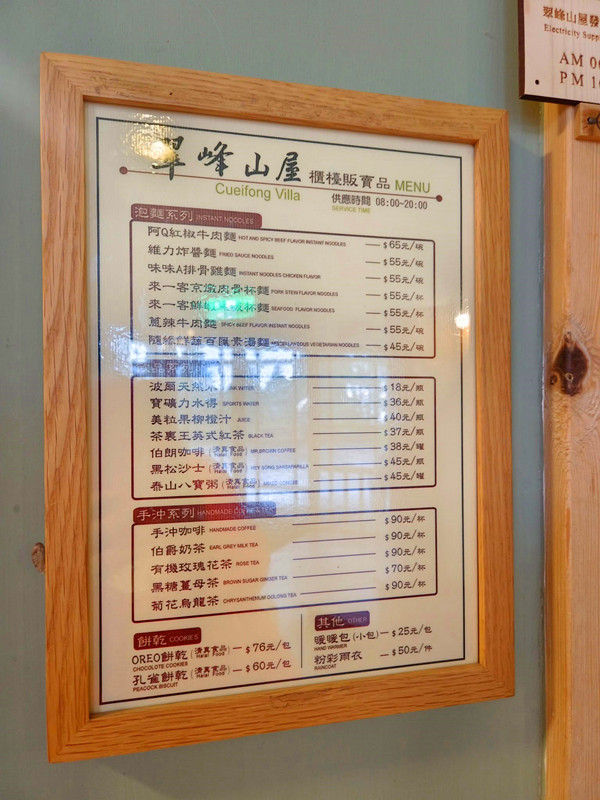 翠峰山屋發
Electricity Supp
AM 0
PM 1
翠峰山屋 櫃檯販賣品 MENU
Cueifong Villa
供應時間 08:00~20:00
SERVICE TIME
泡麵系列 INSTANT NOODLES
阿Q紅椒牛肉麵 HOT AND SPICY BEEF FLAVOR INSTANT NOODLES $65元/碗
維力炸醬麵 FRIED SAUCE NOODLES $55元/碗
味味A排骨雞麵 INSTANT NOODLES CHICKEN FLAVOR $55元/碗
來一客京燉肉骨杯麵 PORK STEW FLAVOR NOODLES $55元/杯
來一客鮮 杯麵 SEAFOOD FLAVOR NOODLES $55元/杯
蔥辣牛肉麵 SPICY BEEF FLAVOR INSTANT NOODLES $55元/碗
隨緣鮮蔬百匯素湯麵 VEGETARIAN NOODLES $45元/碗
波爾天然水 $18元/瓶
寶礦力水得 SPORTS WATER $36元/瓶
美粒果柳橙汁 JUICE $40元/瓶
茶裏王英式紅茶 BLACK TEA $37元/瓶
伯朗咖啡 (清真食品 Halal Food) MR.BROWN COFFEE $38元/罐
黑松沙士 (清真食品 Halal Food) HEY SONG SARSAPARILLA $45元/瓶
泰山八寶粥 (清真食品 Halal Food) MIXED CONGEE $45元/罐
手沖系列 HANDMADE COFFEE
手沖咖啡 HANDMADE COFFEE $90元/杯
伯爵奶茶 EARL GREY MILK TEA $90元/杯
有機玫瑰花茶 ROSS TEA $90元/杯
黑糖薑母茶 BROWN SUGAR GINGER TEA $70元/杯
菊花烏龍茶 CHRYSANTHEMUM OOLONG TEA $90元/杯
餅乾 COOKIES
OREO餅乾 (清真食品 Halal Food) $76元/包
CHOCOLOTE COOKIES
孔雀餅乾 (清真食品 Halal Food) $60元/包
PEACOCK BISCUIT
其他 OTHER
暖暖包(小包) $25元/包
HAND WARMER
粉彩雨衣 $50元/件
RAINCOAT